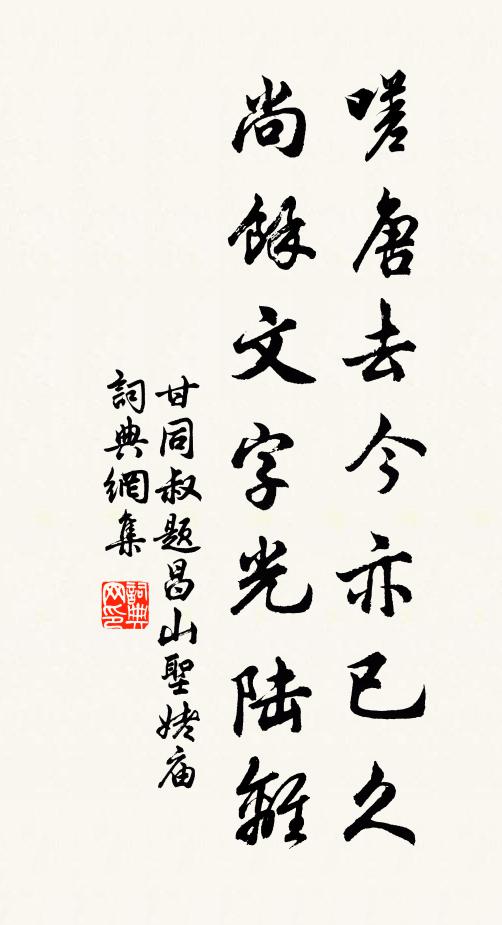 嗟唐去今亦已久
尚餘文字光陆離
甘同叔题昌山聖姥庙
詞典網集
詞典网印